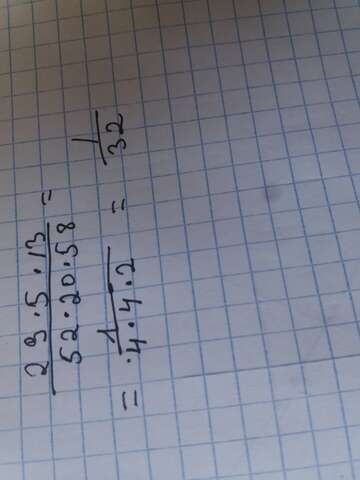 29·5·13
52·20·58 =
= 1
·4·4·2 = 1
32